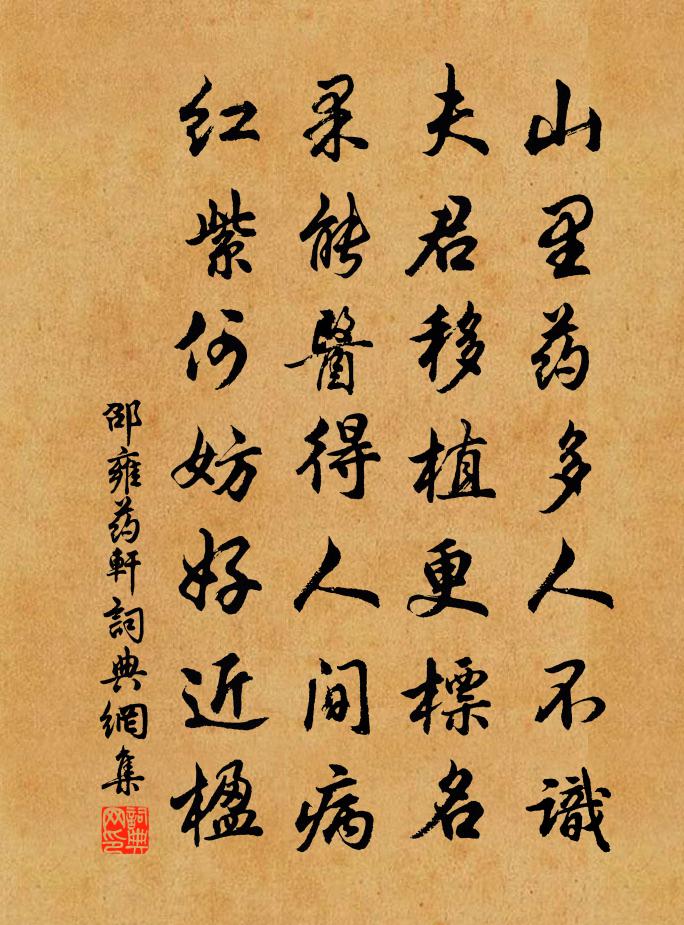 山里药多人不識
夫君移植更標名
果能醫得人间病
紅紫何妨好近楹
邵雍药軒詞典網集
詞典网印